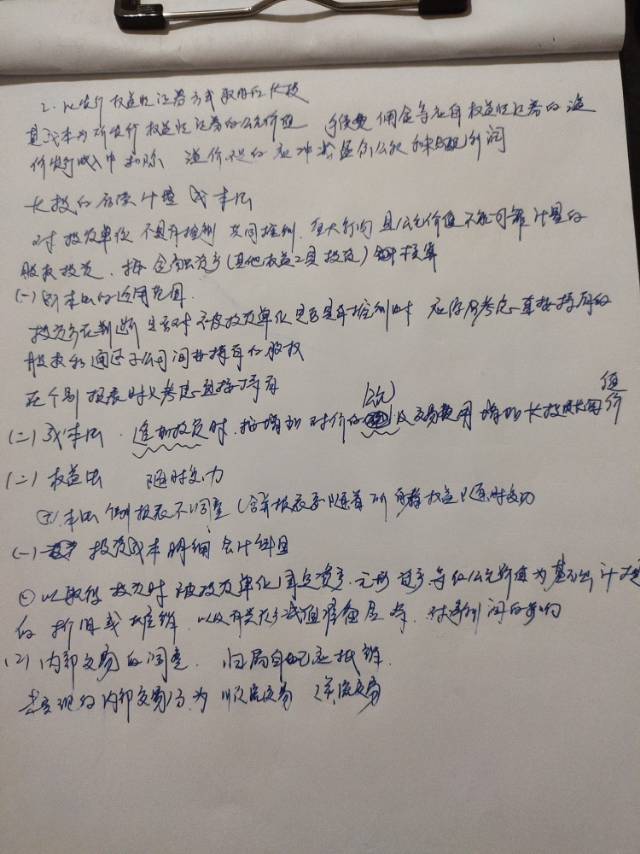 2. 以发行权益性证券方式取得的长投
其成本为所发行权益性证券的公允价值 手续费佣金等应自权益性证券的溢
价发行收入中扣除 溢价不足的应冲减盈余公积和未分配利润
长投的后续计量 成本法
对被投资单位不具有控制 共同控制、重大影响 且公允价值不能可靠计量的
股权投资、按金融资产(其他权益工具投资)核算
(一) 成本法的适用范围
投资方在判断 对被投资单位是否具有控制时 应综合考虑直接持有的
股权和通过子公司间接持有的股权
在个别报表时只考虑直接持有
(二) 成本法 追加投资时、按增加对价的公允价值及交易费用增加长投
(二) 权益法 随时发力
成本法 个别报表不调整(合并报表
(一) 投资成本明细会计科目
① 以取得投资时被投资单位固定资产、无形资产等的公允价值为基础计提
的折旧或摊销、以及有关资产减值准备 对净利润的影响
(2) 内部交易的调整、归属自己应抵销
未实现的内部交易分为 顺流交易 逆流交易